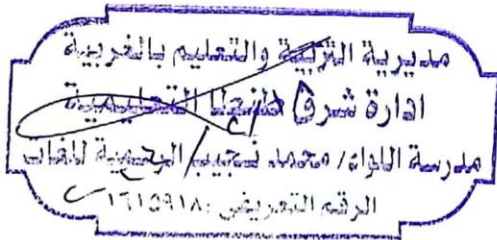 مديرية التربية والتعليم بالغربية
ادارة شرق طنطا التعليمية
مدرسة اللواء/ محمد نجيب الرسمية للغات
الرقم التعريفى: ١٦١٥٩١٨